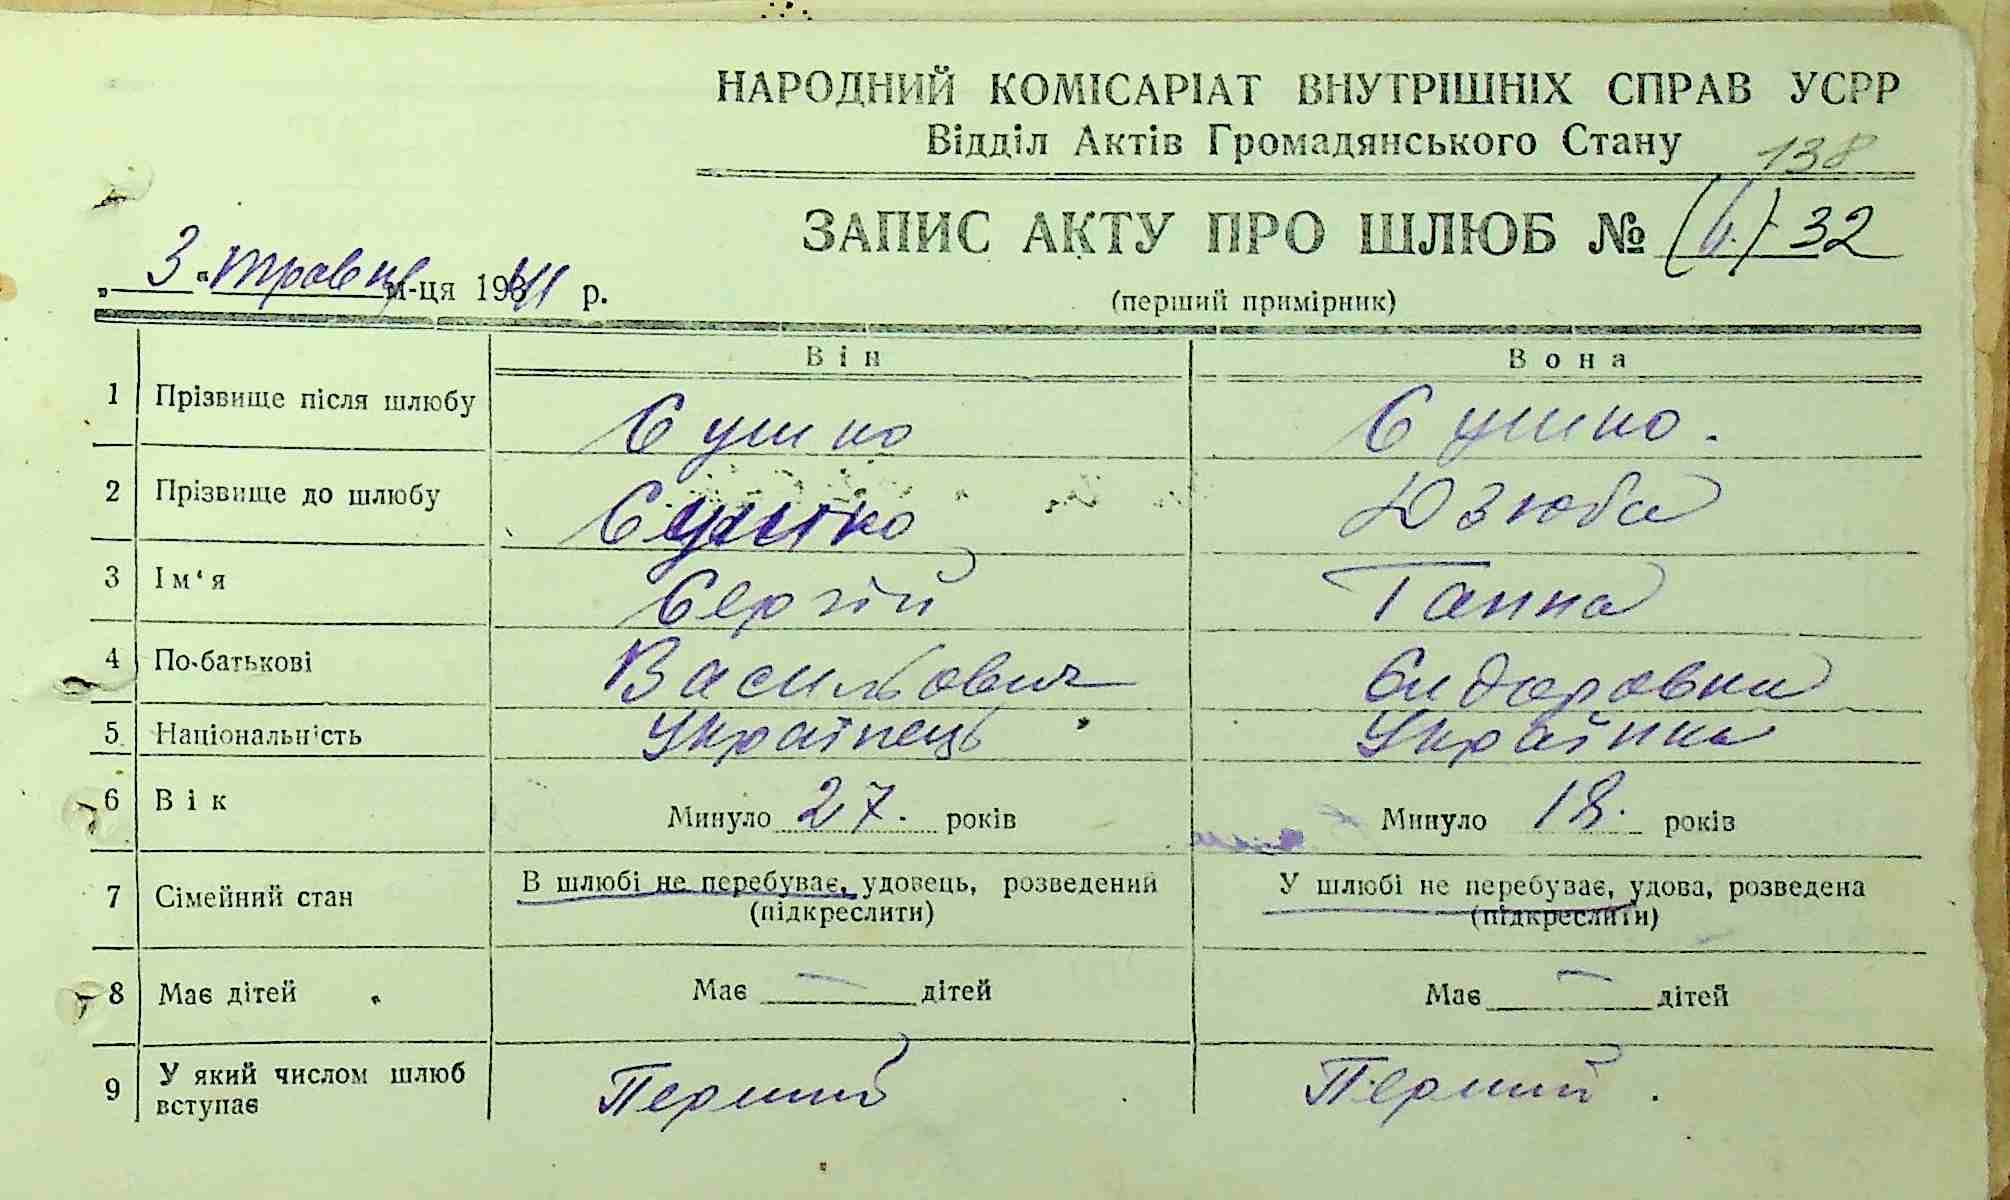 НАРОДНИЙ КОМІСАРІАТ ВНУТРІШНІХ СПРАВ УСРР
Відділ Актів Громадянського Стану
138
ЗАПИС АКТУ ПРО ШЛЮБ № 32
„ 3 “ травня м-ця 1941 р.
(перший примірник)
Він Вона
1 Прізвище після шлюбу Сушко Сушко.
2 Прізвище до шлюбу Сушко Дзюба
3 Ім‘я Сергій Ганна
4 По-батькові Васильович Сидоровна
5 Національність Українець Українка
6 Вік Минуло 27. років Минуло 18. років
7 Сімейний стан В шлюбі не перебуває, удовець, розведений У шлюбі не перебуває, удова, розведена
(підкреслити) (підкреслити)
8 Має дітей Має — дітей Має — дітей
9 У який числом шлюб вступає Перший Перший.